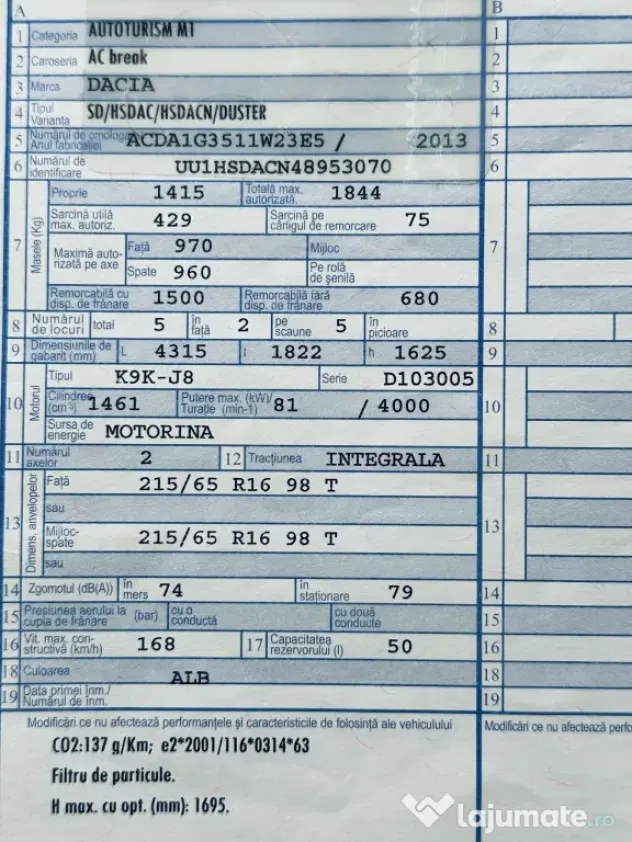 A B
1 Categoria AUTOTURISM M1 1
2 Caroseria AC break 2
3 Marca DACIA 3
4 Tipul Varianta SD/HSDAC/HSDACN/DUSTER 4
5 Numărul de omologare Anul fabricației ACDA1G3511W23E5 / 2013 5
6 Numărul de identificare UU1HSDACN48953070 6
7 Masele (Kg) Proprie 1415 Totală max. autorizată. 1844 7
Sarcină utilă max. autoriz. 429 Sarcină pe cârligul de remorcare 75
Maximă autorizată pe axe Față 970 Mijloc
Spate 960 Pe rolă de șenilă
Remorcabilă cu disp. de frânare 1500 Remorcabilă fără disp. de frânare 680
8 Numărul de locuri total 5 în față 2 pe scaune 5 în picioare 8
9 Dimensiunile de gabarit (mm) L 4315 l 1822 h 1625 9
10 Motorul Tipul K9K-J8 Serie D103005 10
Cilindree (cm³) 1461 Putere max. (kW)/ Turație (min-1) 81 / 4000
Sursa de energie MOTORINA
11 Numărul axelor 2 12 Tracțiunea INTEGRALA 11
13 Dimens. anvelopelor Față 215/65 R16 98 T 13
sau
Mijloc-spate 215/65 R16 98 T
sau
14 Zgomotul (dB(A)) în mers 74 în staționare 79 14
15 Presiunea aerului la cupla de frânare (bar) cu o conductă cu două conducte 15
16 Vit. max. constructivă (km/h) 168 17 Capacitatea rezervorului (l) 50 16
18 Culoarea ALB 18
19 Data primei înm./ Numărul de înm. 19
Modificări ce nu afectează performanțele și caracteristicile de folosință ale vehiculului Modificări ce nu afectează perform
CO2:137 g/Km; e2*2001/116*0314*63
Filtru de particule.
H max. cu opt. (mm): 1695.
lajumate.ro